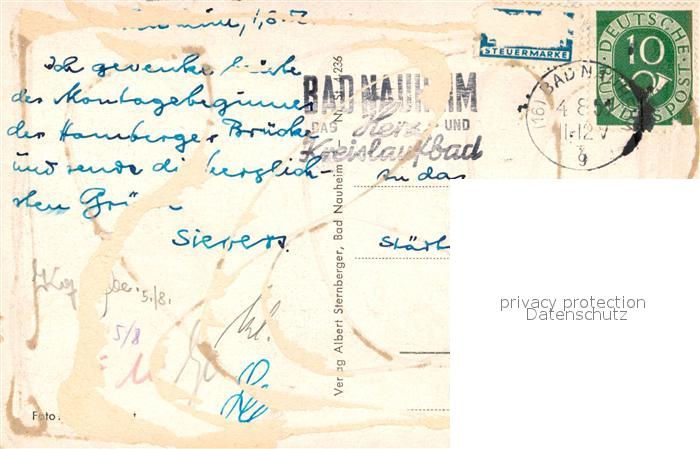 Ich gedenke heute
des Montagebeginnes
der Hamberger Brücke
und sende die herzlich-
sten
Sievers.
5./8.
5/8
Foto:
Verlag Albert Sternberger, Bad Nauheim
236
STEUERMARKE
BAD NAUHEIM
DAS Herz- UND
Kreislaufbad
(16) BAD NAUHEIM
4.8.54
11-12V
g
DEUTSCHE
BUNDESPOST
10
An das
privacy protection
Datenschutz